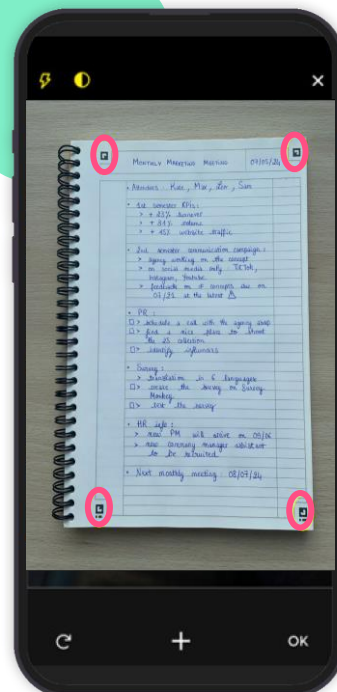 MONTHLY MARKETING MEETING 07/05/24
• Attendees : Kate, Max, Leo, Sam
• 1st semester KPIs :
> + 23% turnover
> + 31% orders
> + 15% website traffic
• 2nd semester communication campaign :
> agency working on the concept
> on social media only : TikTok,
Instagram, Youtube
> feedback on concepts due on
07/21 at the latest
• PR :
> schedule a call with the agency
> find a nice place to shoot
the collection
> identify influencers
• Survey :
> translation in 6 languages
> create the survey on Survey
Monkey
> test the survey
• HR info :
> new PM will arrive on 09/06
> new manager assistant
to be recruited
• Next monthly meeting : 08/07/24
OK